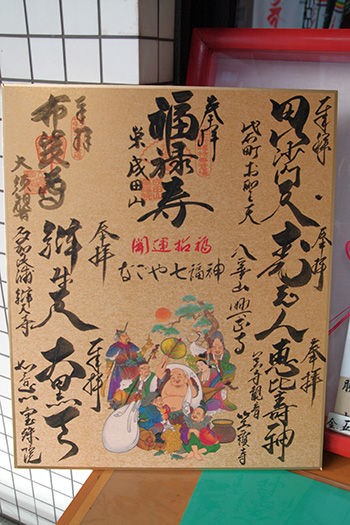 奉拝
毘沙門天
袋町お聖天
奉拝
寿老人
八事山興正寺
奉拝
恵比寿神
笠寺観音
笠覆寺
奉拝
福禄寿
栄成田山
開運招福
なごや七福神
奉拝
布袋尊
大須観音
奉拝
辨才天
辨天寺
奉拝
大黒天
宝珠院